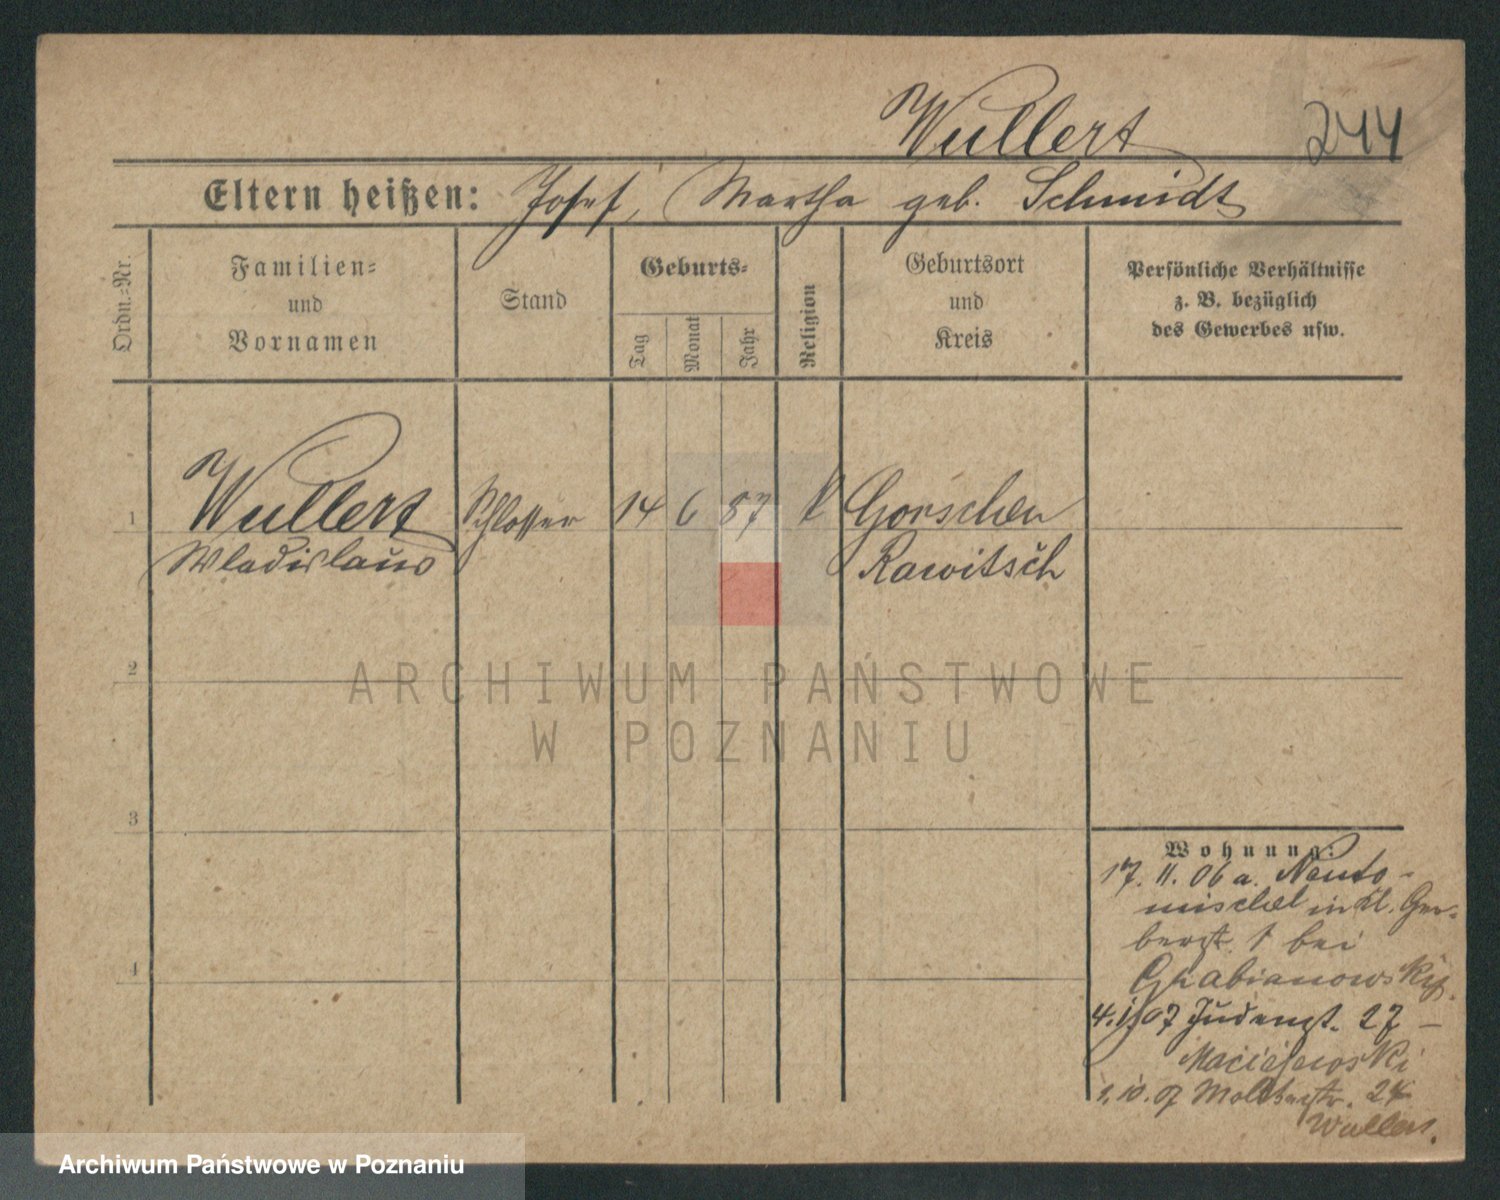 Wullert 244
Eltern heißen: Josef, Martha geb. Schmidt
Ordn.=Nr.
Familien=
und
Vornamen
Stand
Geburts=
Tag
Monat
Jahr
Religion
Geburtsort
und
Kreis
Persönliche Verhältnisse
z. B. bezüglich
des Gewerbes usw.
1 Wullert Schlosser 14 6 87 k Gorschen
Wladislaus Rawitsch
2
3
4
Wohnung:
17. 11. 06 a. Neuto-
mischel in Kl. Ger-
berstr. 1 bei
4. 1. 07 Judenstr. 27 –
Maciejewski
1. 10. 07 Moltkestr. 24
Wullert.
ARCHIWUM PAŃSTWOWE
W POZNANIU
Archiwum Państwowe w Poznaniu